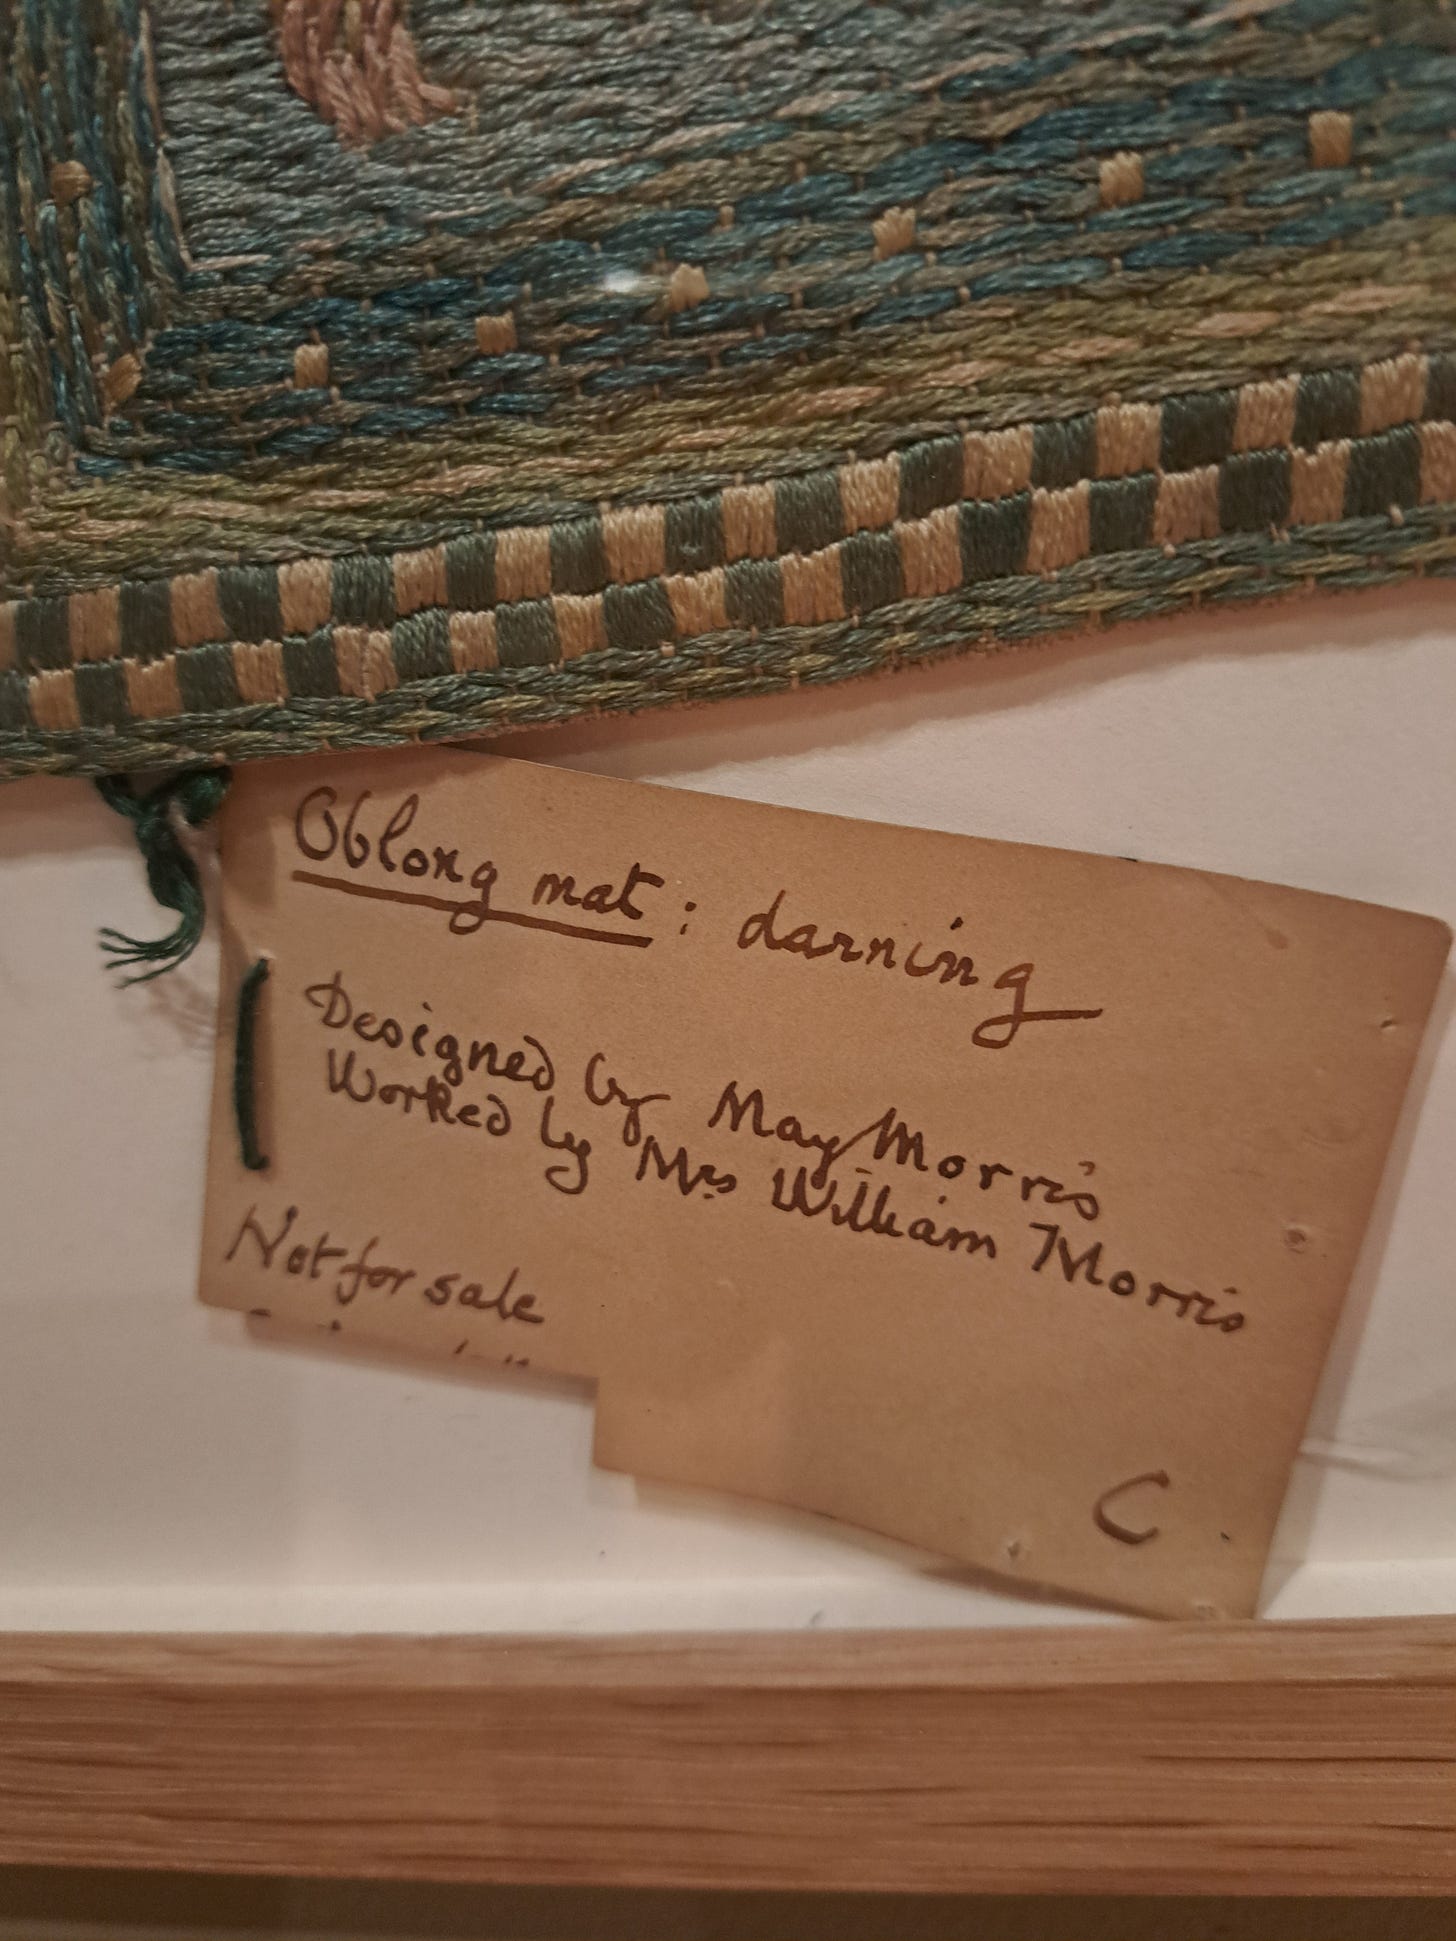 Oblong mat : darning
Designed by May Morris
Worked by Mrs William Morris
Not for sale
C